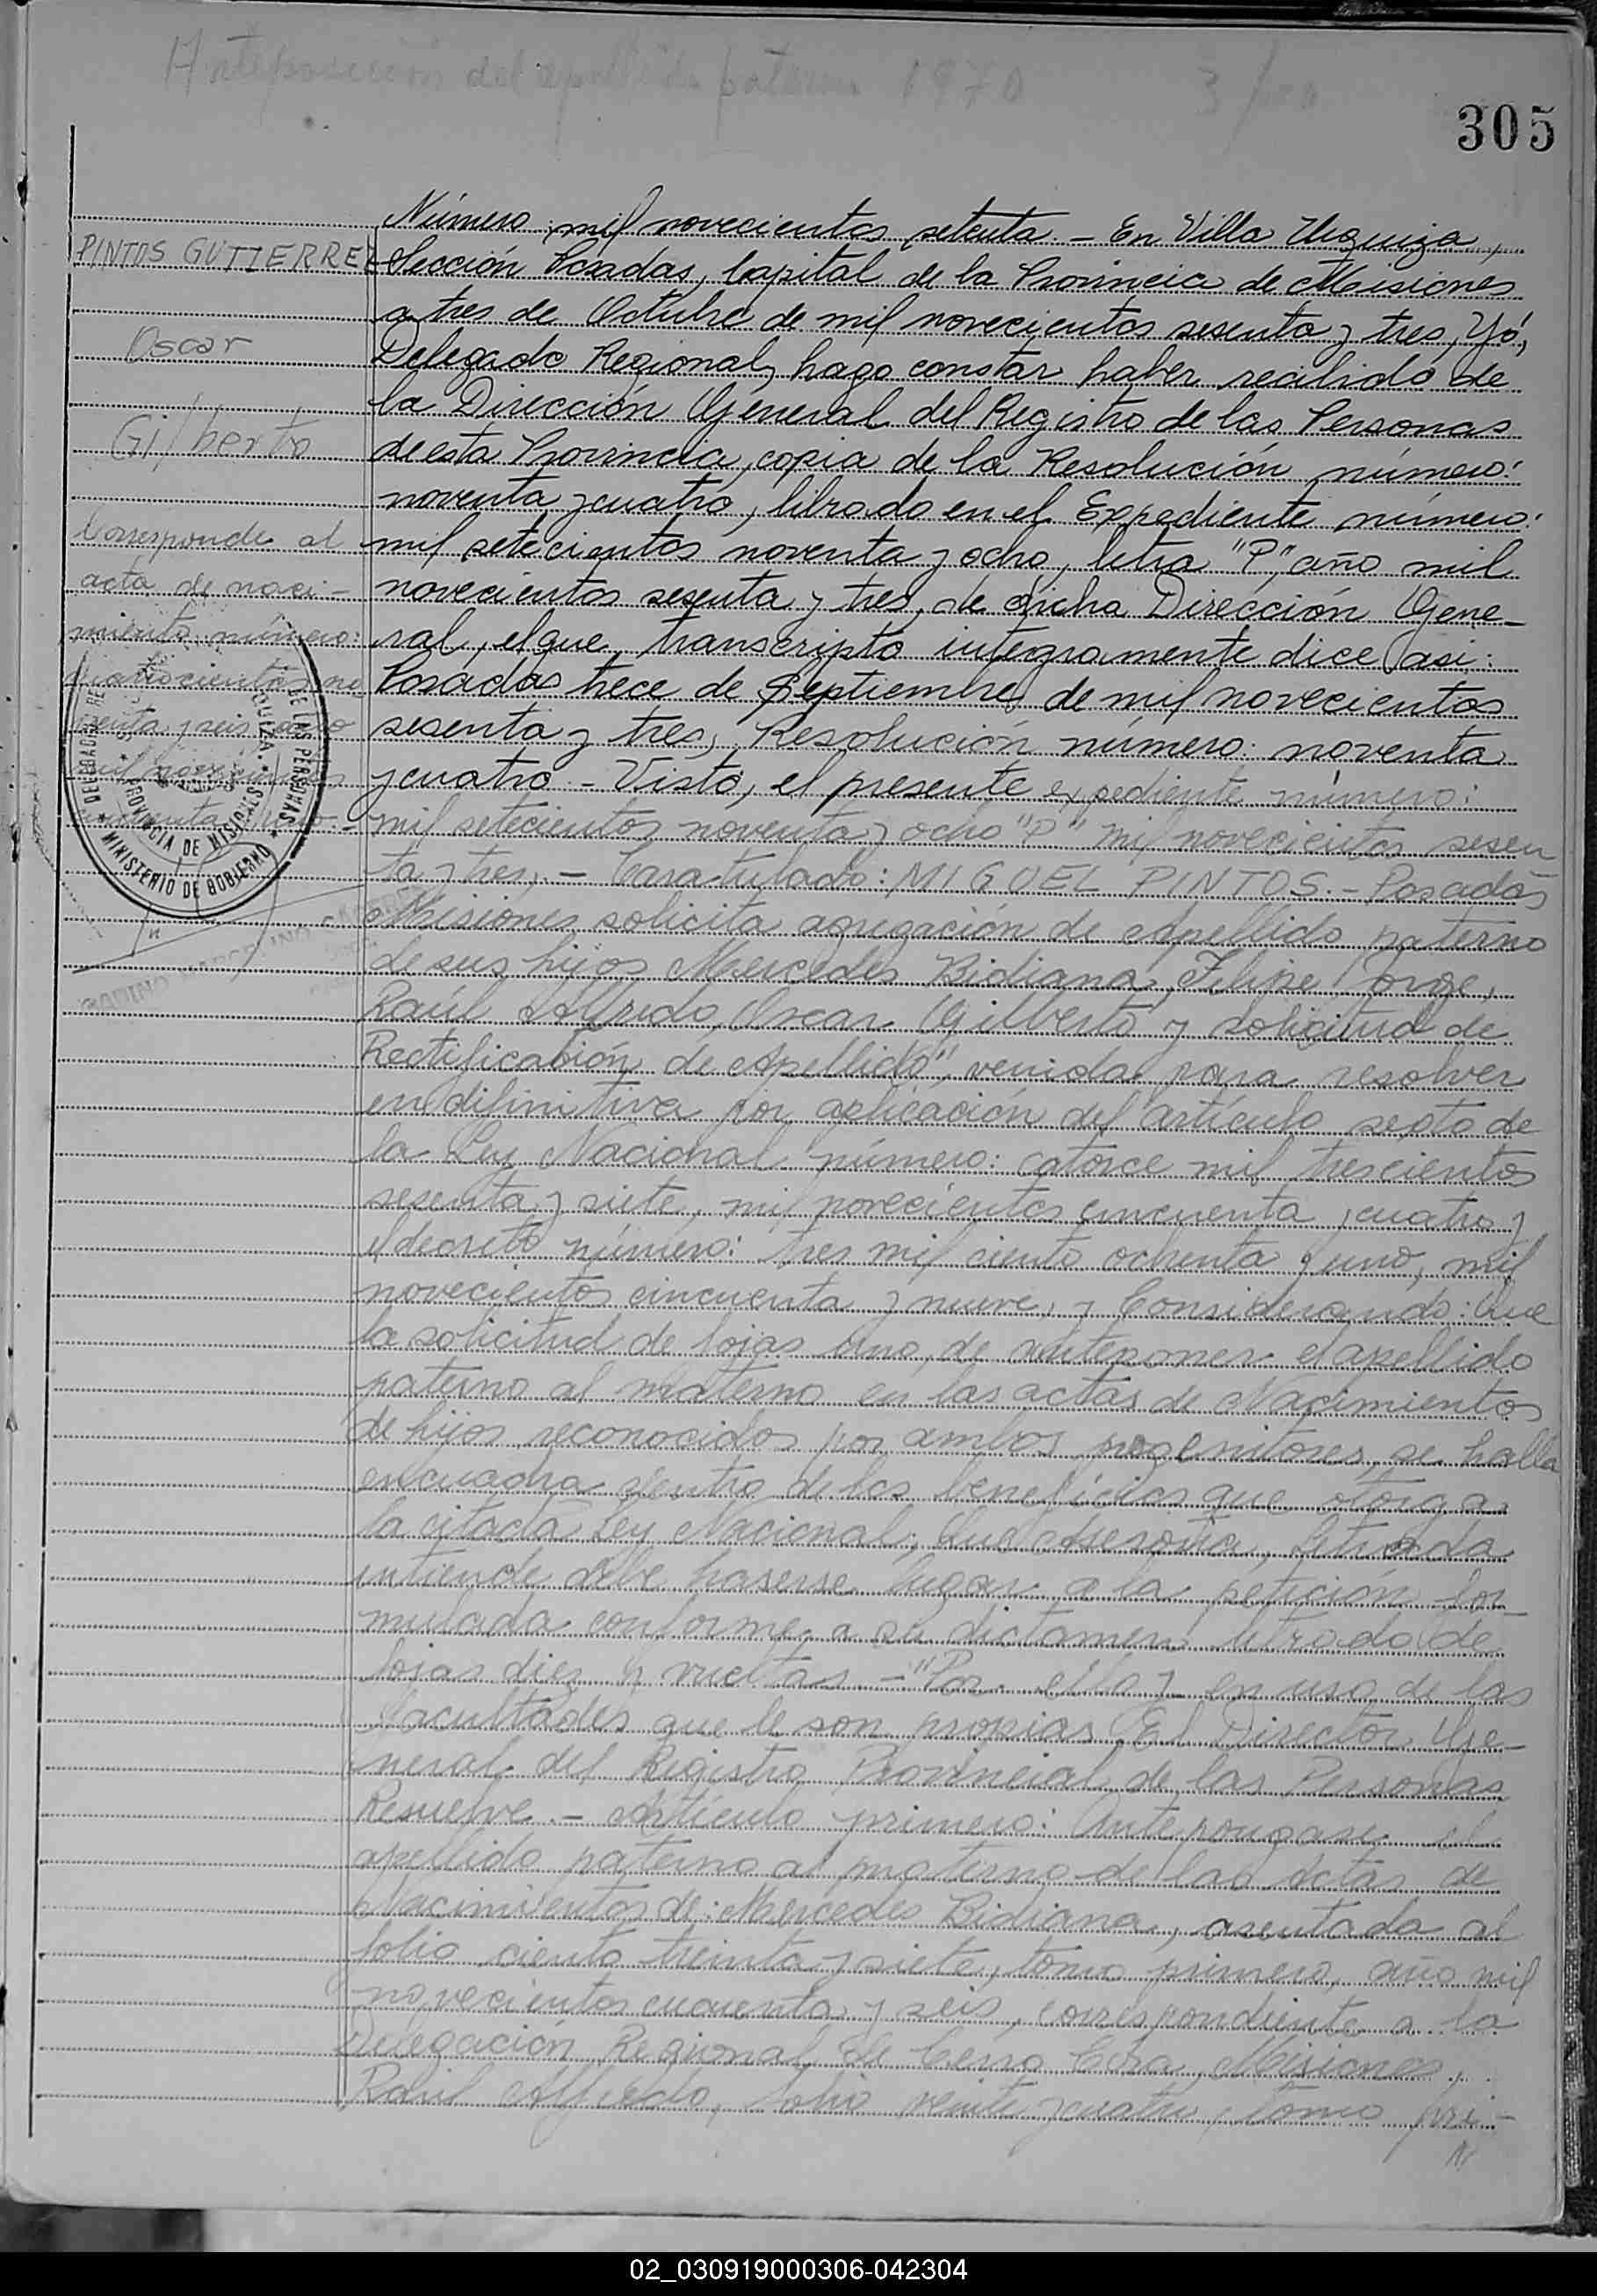 Anteposición del apellido paterno 1970
305
PINTOS GUTIERREZ
Oscar
Gilberto
Corresponde al
acta de naci-
miento número:
cuatrocientos no
venta y seis, año
mil novecientos
DE LAS PERSONAS
PROVINCIA DE MISIONES
MINISTERIO DE GOBIERNO
Número: mil novecientos setenta. - En Villa Urquiza,
Sección Posadas, Capital de la Provincia de Misiones
a tres de Octubre de mil novecientos sesenta y tres, Yó,
Delegado Regional, hago constar haber recibido de
la Dirección General del Registro de las Personas
de esta Provincia, copia de la Resolución número:
noventa y cuatro, librado en el Expediente número:
mil setecientos noventa y ocho, letra "P", año mil
novecientos sesenta y tres, de dicha Dirección Gene-
ral, el que transcripto integramente dice asi:
Posadas trece de Septiembre de mil novecientos
sesenta y tres, Resolución número: noventa
y cuatro - Visto, el presente expediente número:
mil setecientos noventa y ocho "P" mil novecientos sesen
ta y tres, - Caratulado: MIGUEL PINTOS. - Posadas
Misiones solicita agregación de Apellido paterno
de sus hijos Mercedes Bidiana, Felipe Jorge,
Raúl Alfredo, Oscar Gilberto y solicitud de
Rectificación de Apellido", venida para resolver
en difinitiva por aplicación del artículo sexto de
la Ley Nacional número: catorce mil trescientos
sesenta y siete, mil novecientos cincuenta y cuatro y
el decreto número: tres mil ciento ochenta y uno, mil
novecientos cincuenta y nueve, y Considerando: Que
la solicitud de fojas uno, de anteponer el apellido
paterno al materno en las actas de Nacimientos
de hijos reconocidos por ambos progenitores, se halla
encuadra dentro de los beneficios que otorga
la citada Ley Nacional; Que Asesoría Letrada
entiende debe haserse lugar a la petición for-
mulada conforme a su dictamen letrado de
fojas diez y vueltas - "Por ello y en uso de las
facultades que le son propias, El Director Ge-
neral del Registro Provincial de las Personas
Resuelve. - Artículo primero: Antepongase el
apellido paterno al materno de las Actas de
Nacimientos de: Mercedes Bidiana, asentada al
folio ciento treinta y siete, tomo primero, año mil
novecientos cuarenta y seis, correspondiente a la
Delegación Regional de Cerro Cora, Misiones,
Raúl Alfredo, folio veinte y cuatro, tomo pri-
02_030919000306-042304